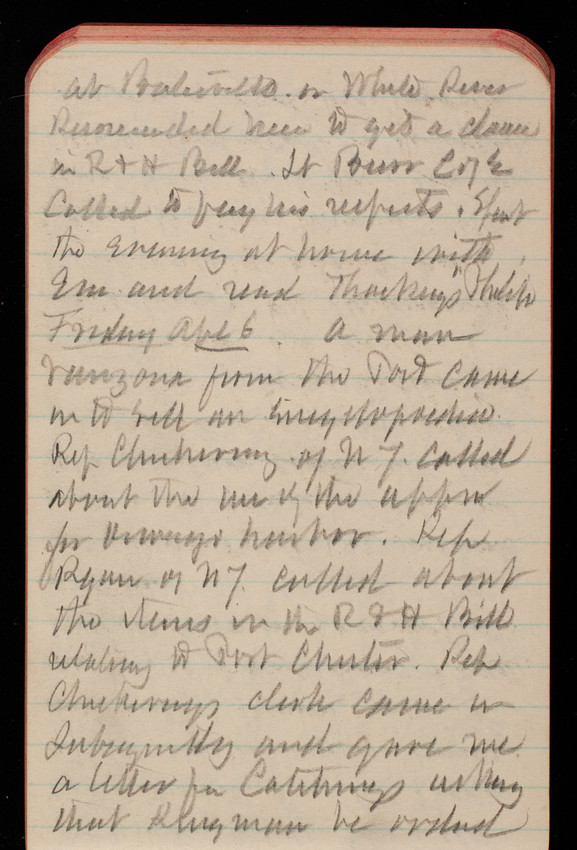 at Batesville on White River
Recommended him to get a clause
in R & H Bill. Lt Burr C of E
Called to pay his respects. Spent
the evening at home with
Em and read Thackeray's Philip
Friday Apl 6. A man
from the Post came
in to sell an Encyclopaedia.
Rep Chickering of N Y. called
about the use of the appn
for Oswego harbor. Rep
Ryan of N Y. called about
the items in the R & H Bill
relating to Port Chester. Rep
Chickerings clerk came in
subsequently and gave me
a letter for Catchings asking
that Kingman be ordered